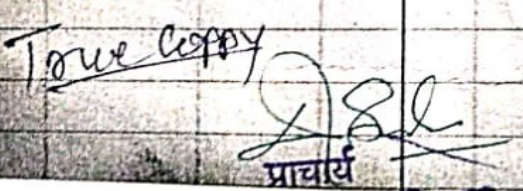 True Coppy
प्राचार्य